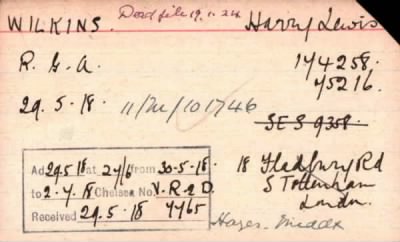 Dead file 19.1.24
WILKINS. Harry Lewis
R.G.A. 174258.
75216.
29.5.18. 11/M/101746
SES 9358.
Ad 29.5.18 at 27/6 from 30-5-18.
to 2.7.18 Chelsea No. V.R&D.
Received 29.5.18 7765
18 Fladbury Rd
S Tottenham
London.
Hayes. Middx